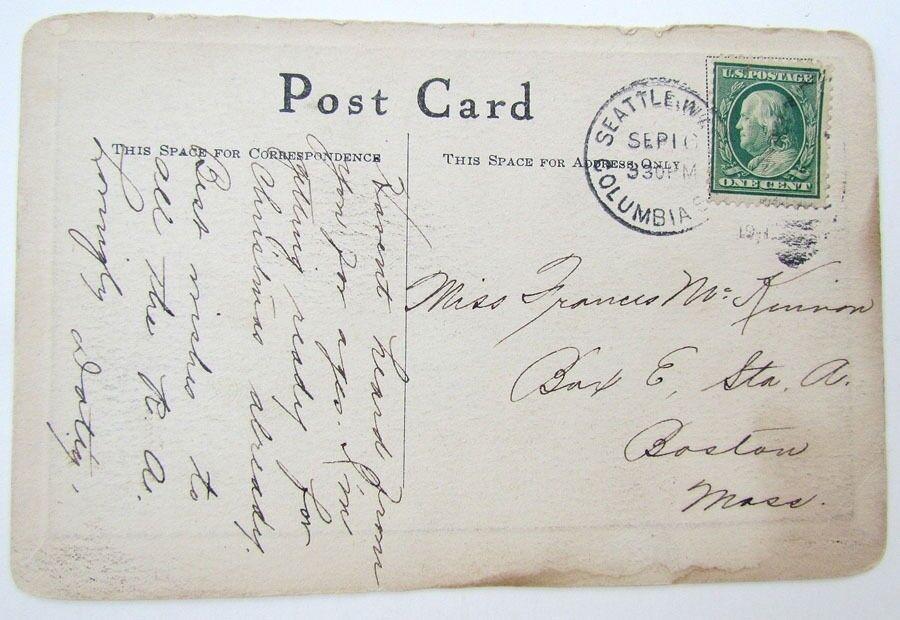 Post Card
THIS SPACE FOR CORRESPONDENCE
THIS SPACE FOR ADDRESS ONLY
SEATTLE, WA
SEP 16
330 PM
COLUMBIA S
U.S. POSTAGE
ONE CENT
Miss Frances McKinnon
Box E, Sta. A.
Boston
Mass.
Havent heard from
you for ages. I'm
getting ready for
Christmas already.
Best wishes to
all the R. A.
Lovingly